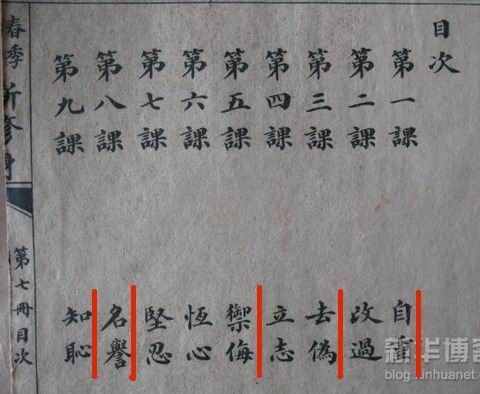 目次
第一課 自
第二課 改過
第三課 去偽
第四課 立志
第五課 禦侮
第六課 恆心
第七課 堅忍
第八課 名譽
第九課 知恥
春季 新修身
第七冊目次
新华博
blog.xinhuanet.